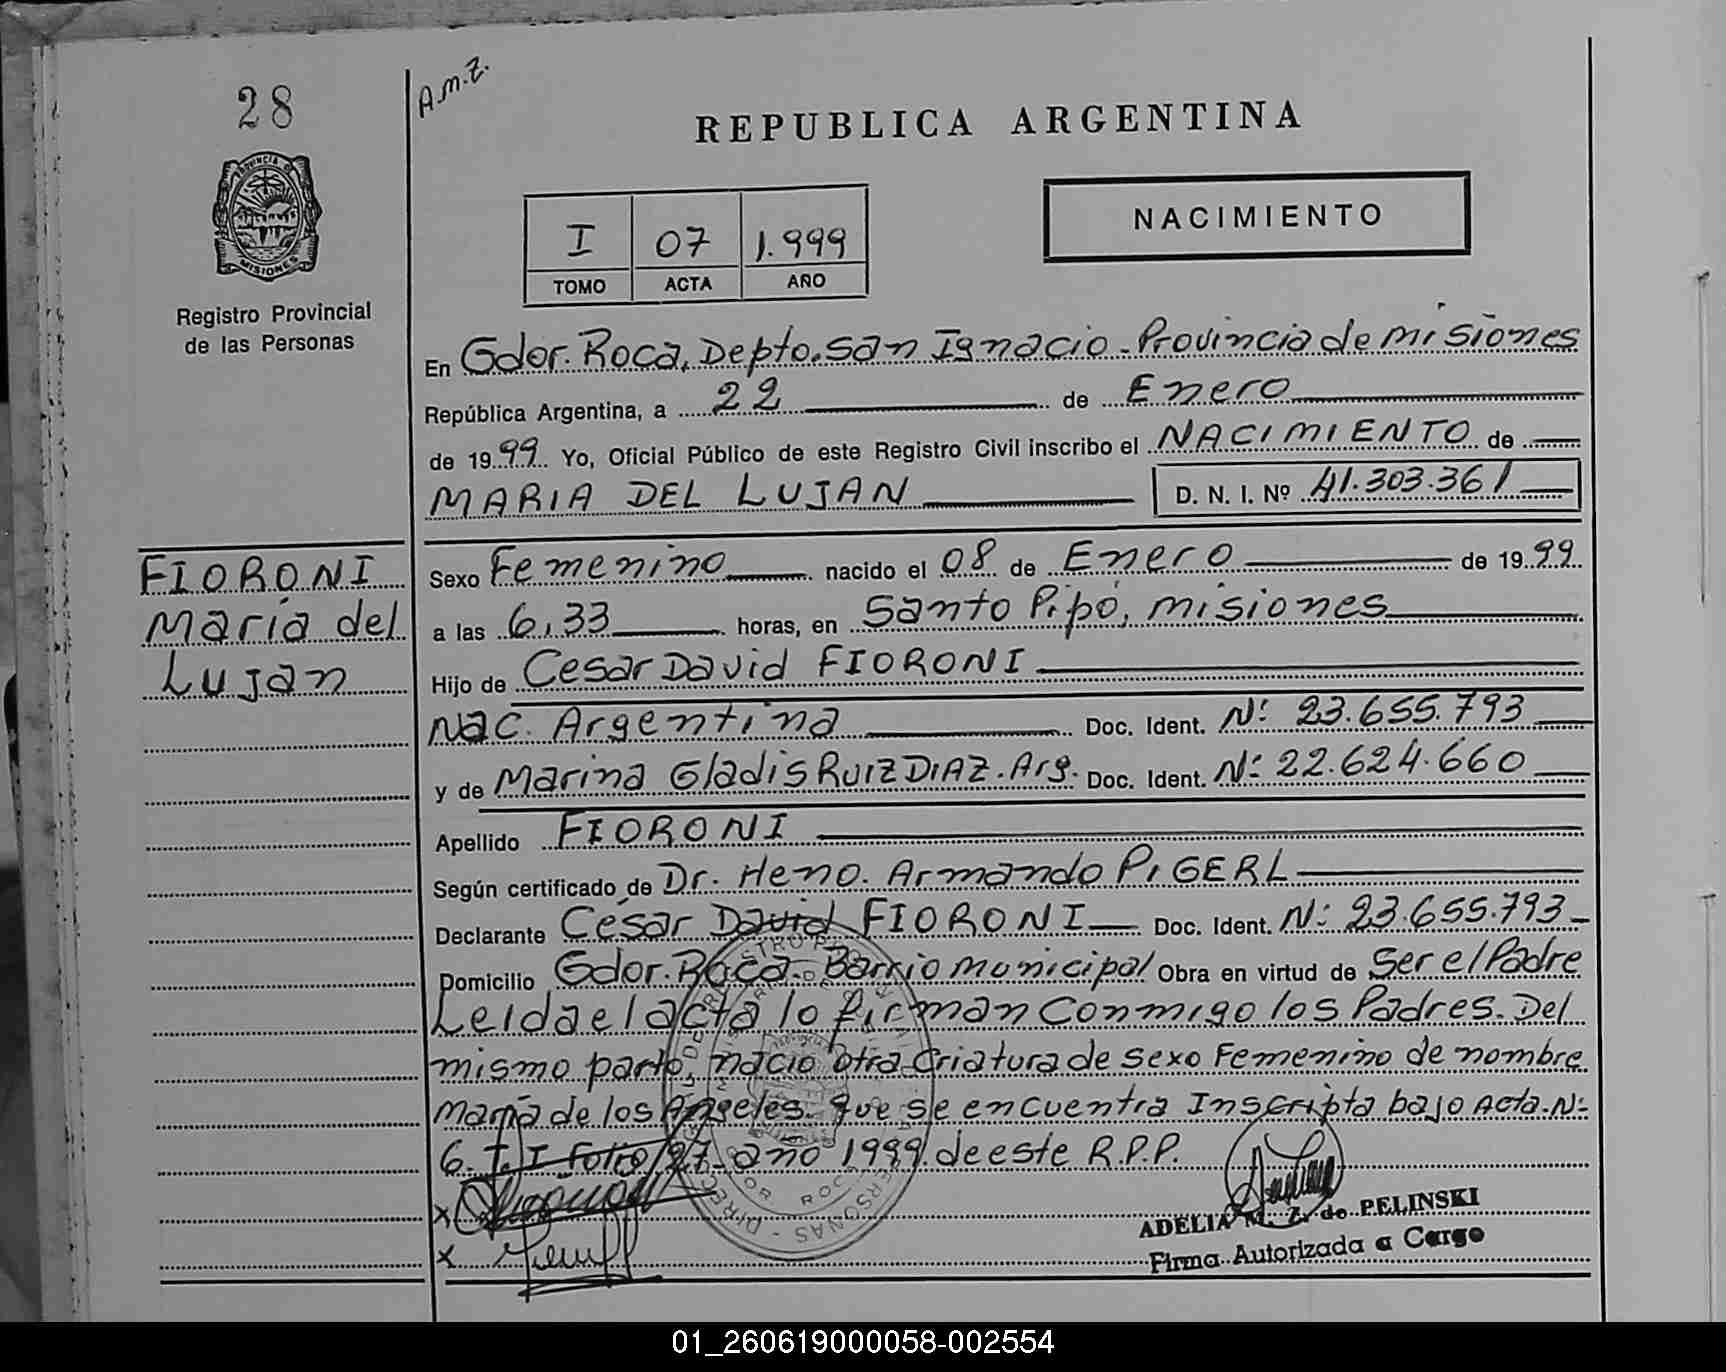 28
A.M.Z.
REPUBLICA ARGENTINA
PROVINCIA D
MISIONES
Registro Provincial
de las Personas
I 07 1.999
TOMO ACTA AÑO
NACIMIENTO
En Gdor. Roca, Depto. San Ignacio - Provincia de Misiones
República Argentina, a 22 de Enero
de 1999 Yo, Oficial Público de este Registro Civil inscribo el NACIMIENTO de
MARIA DEL LUJAN D. N. I. Nº 41.303.361
FIORONI
María del
Lujan
Sexo Femenino nacido el 08 de Enero de 1999
a las 6,33 horas, en Santo Pipó, Misiones
Hijo de Cesar David FIORONI
Nac. Argentina Doc. Ident. Nº 23.655.793
y de Marina Gladis RUIZ DIAZ. Arg. Doc. Ident. Nº 22.624.660
Apellido FIORONI
Según certificado de Dr. Heno. Armando PIGERL
Declarante César David FIORONI Doc. Ident. Nº 23.655.793
Domicilio Gdor. Roca - Barrio Municipal Obra en virtud de Ser el Padre
Leida el acta lo firman conmigo los Padres. Del
mismo parto, nació otra criatura de sexo Femenino de nombre
María de los Angeles. que se encuentra Inscripta bajo Acta Nº
6. T. I Folio 27 año 1999. de este R.P.P.
ADELIA M. Z. de PELINSKI
Firma Autorizada a Cargo
01_260619000058-002554